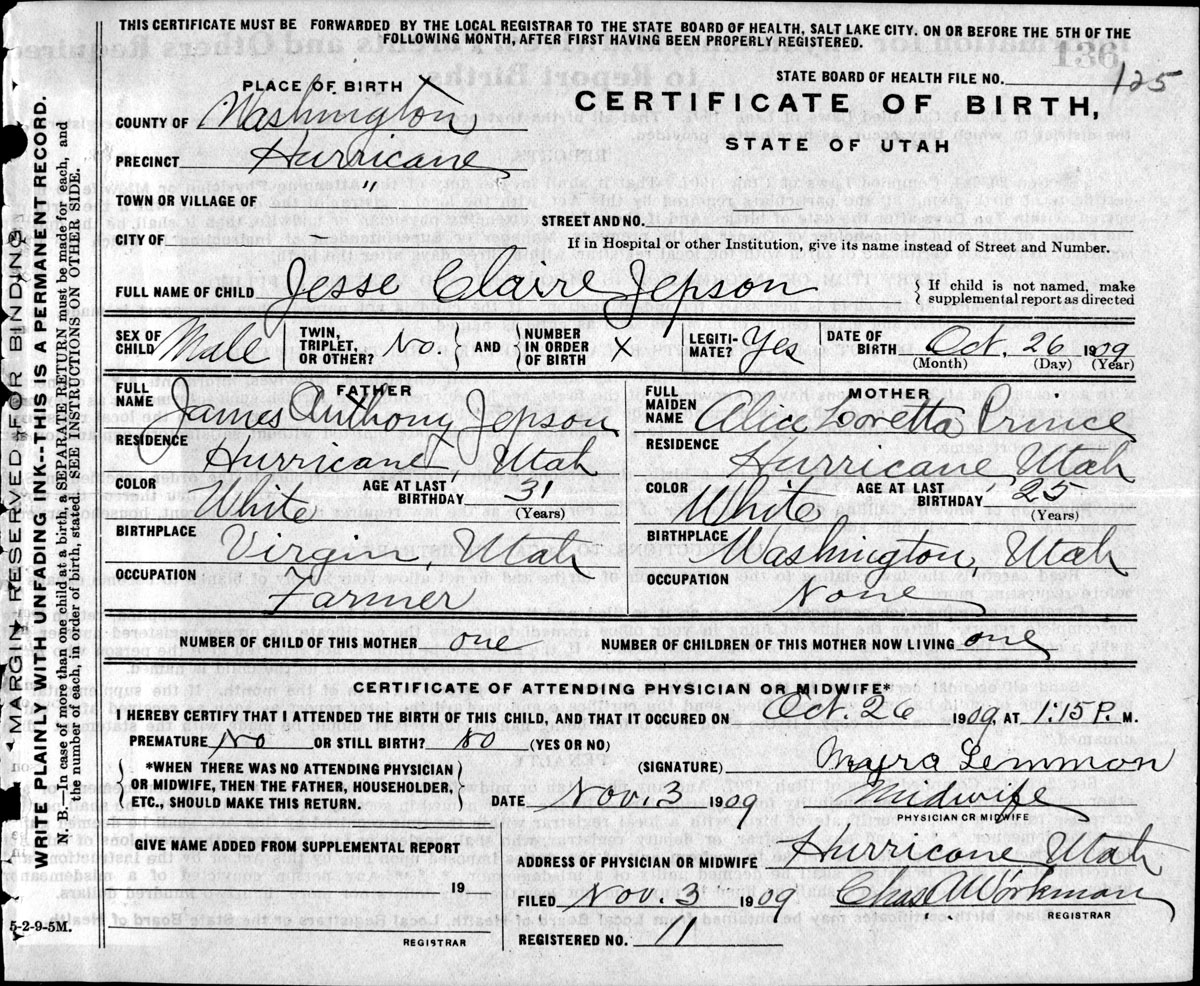 THIS CERTIFICATE MUST BE FORWARDED BY THE LOCAL REGISTRAR TO THE STATE BOARD OF HEALTH, SALT LAKE CITY. ON OR BEFORE THE 5TH OF THE
FOLLOWING MONTH, AFTER FIRST HAVING BEEN PROPERLY REGISTERED.
136
STATE BOARD OF HEALTH FILE NO. 125
PLACE OF BIRTH X
CERTIFICATE OF BIRTH,
STATE OF UTAH
COUNTY OF Washington
PRECINCT Hurricane
TOWN OR VILLAGE OF "
STREET AND NO.
CITY OF –
If in Hospital or other Institution, give its name instead of Street and Number.
FULL NAME OF CHILD Jesse Claire Jepson { If child is not named, make
supplemental report as directed
SEX OF CHILD Male TWIN, TRIPLET, OR OTHER? No. } AND { NUMBER IN ORDER OF BIRTH X LEGITI-MATE? Yes DATE OF BIRTH Oct. 26 1909
(Month) (Day) (Year)
FATHER
FULL NAME James Anthony Jepson
RESIDENCE Hurricane X Utah
COLOR White AGE AT LAST BIRTHDAY 31
(Years)
BIRTHPLACE Virgin, Utah
OCCUPATION Farmer
MOTHER
FULL MAIDEN NAME Alice Loretta Prince
RESIDENCE Hurricane Utah
COLOR White AGE AT LAST BIRTHDAY 25
(Years)
BIRTHPLACE Washington, Utah
OCCUPATION None
NUMBER OF CHILD OF THIS MOTHER one NUMBER OF CHILDREN OF THIS MOTHER NOW LIVING one
CERTIFICATE OF ATTENDING PHYSICIAN OR MIDWIFE*
I HEREBY CERTIFY THAT I ATTENDED THE BIRTH OF THIS CHILD, AND THAT IT OCCURED ON Oct. 26 1909, AT 1:15 P. M.
PREMATURE No OR STILL BIRTH? No (YES OR NO)
{ *WHEN THERE WAS NO ATTENDING PHYSICIAN
OR MIDWIFE, THEN THE FATHER, HOUSEHOLDER,
ETC., SHOULD MAKE THIS RETURN. }
(SIGNATURE) Myra Lemmon
DATE Nov. 3 1909 Midwife
PHYSICIAN OR MIDWIFE
GIVE NAME ADDED FROM SUPPLEMENTAL REPORT
19
REGISTRAR
ADDRESS OF PHYSICIAN OR MIDWIFE Hurricane Utah
FILED Nov. 3 1909 Chas. A Workman
REGISTRAR
REGISTERED NO. 11
5-2-9-5M.
MARGIN RESERVED FOR BINDING
WRITE PLAINLY WITH UNFADING INK---THIS IS A PERMANENT RECORD.
N. B.—In case of more than one child at a birth, a SEPARATE RETURN must be made for each, and
the number of each, in order of birth, stated. SEE INSTRUCTIONS ON OTHER SIDE.